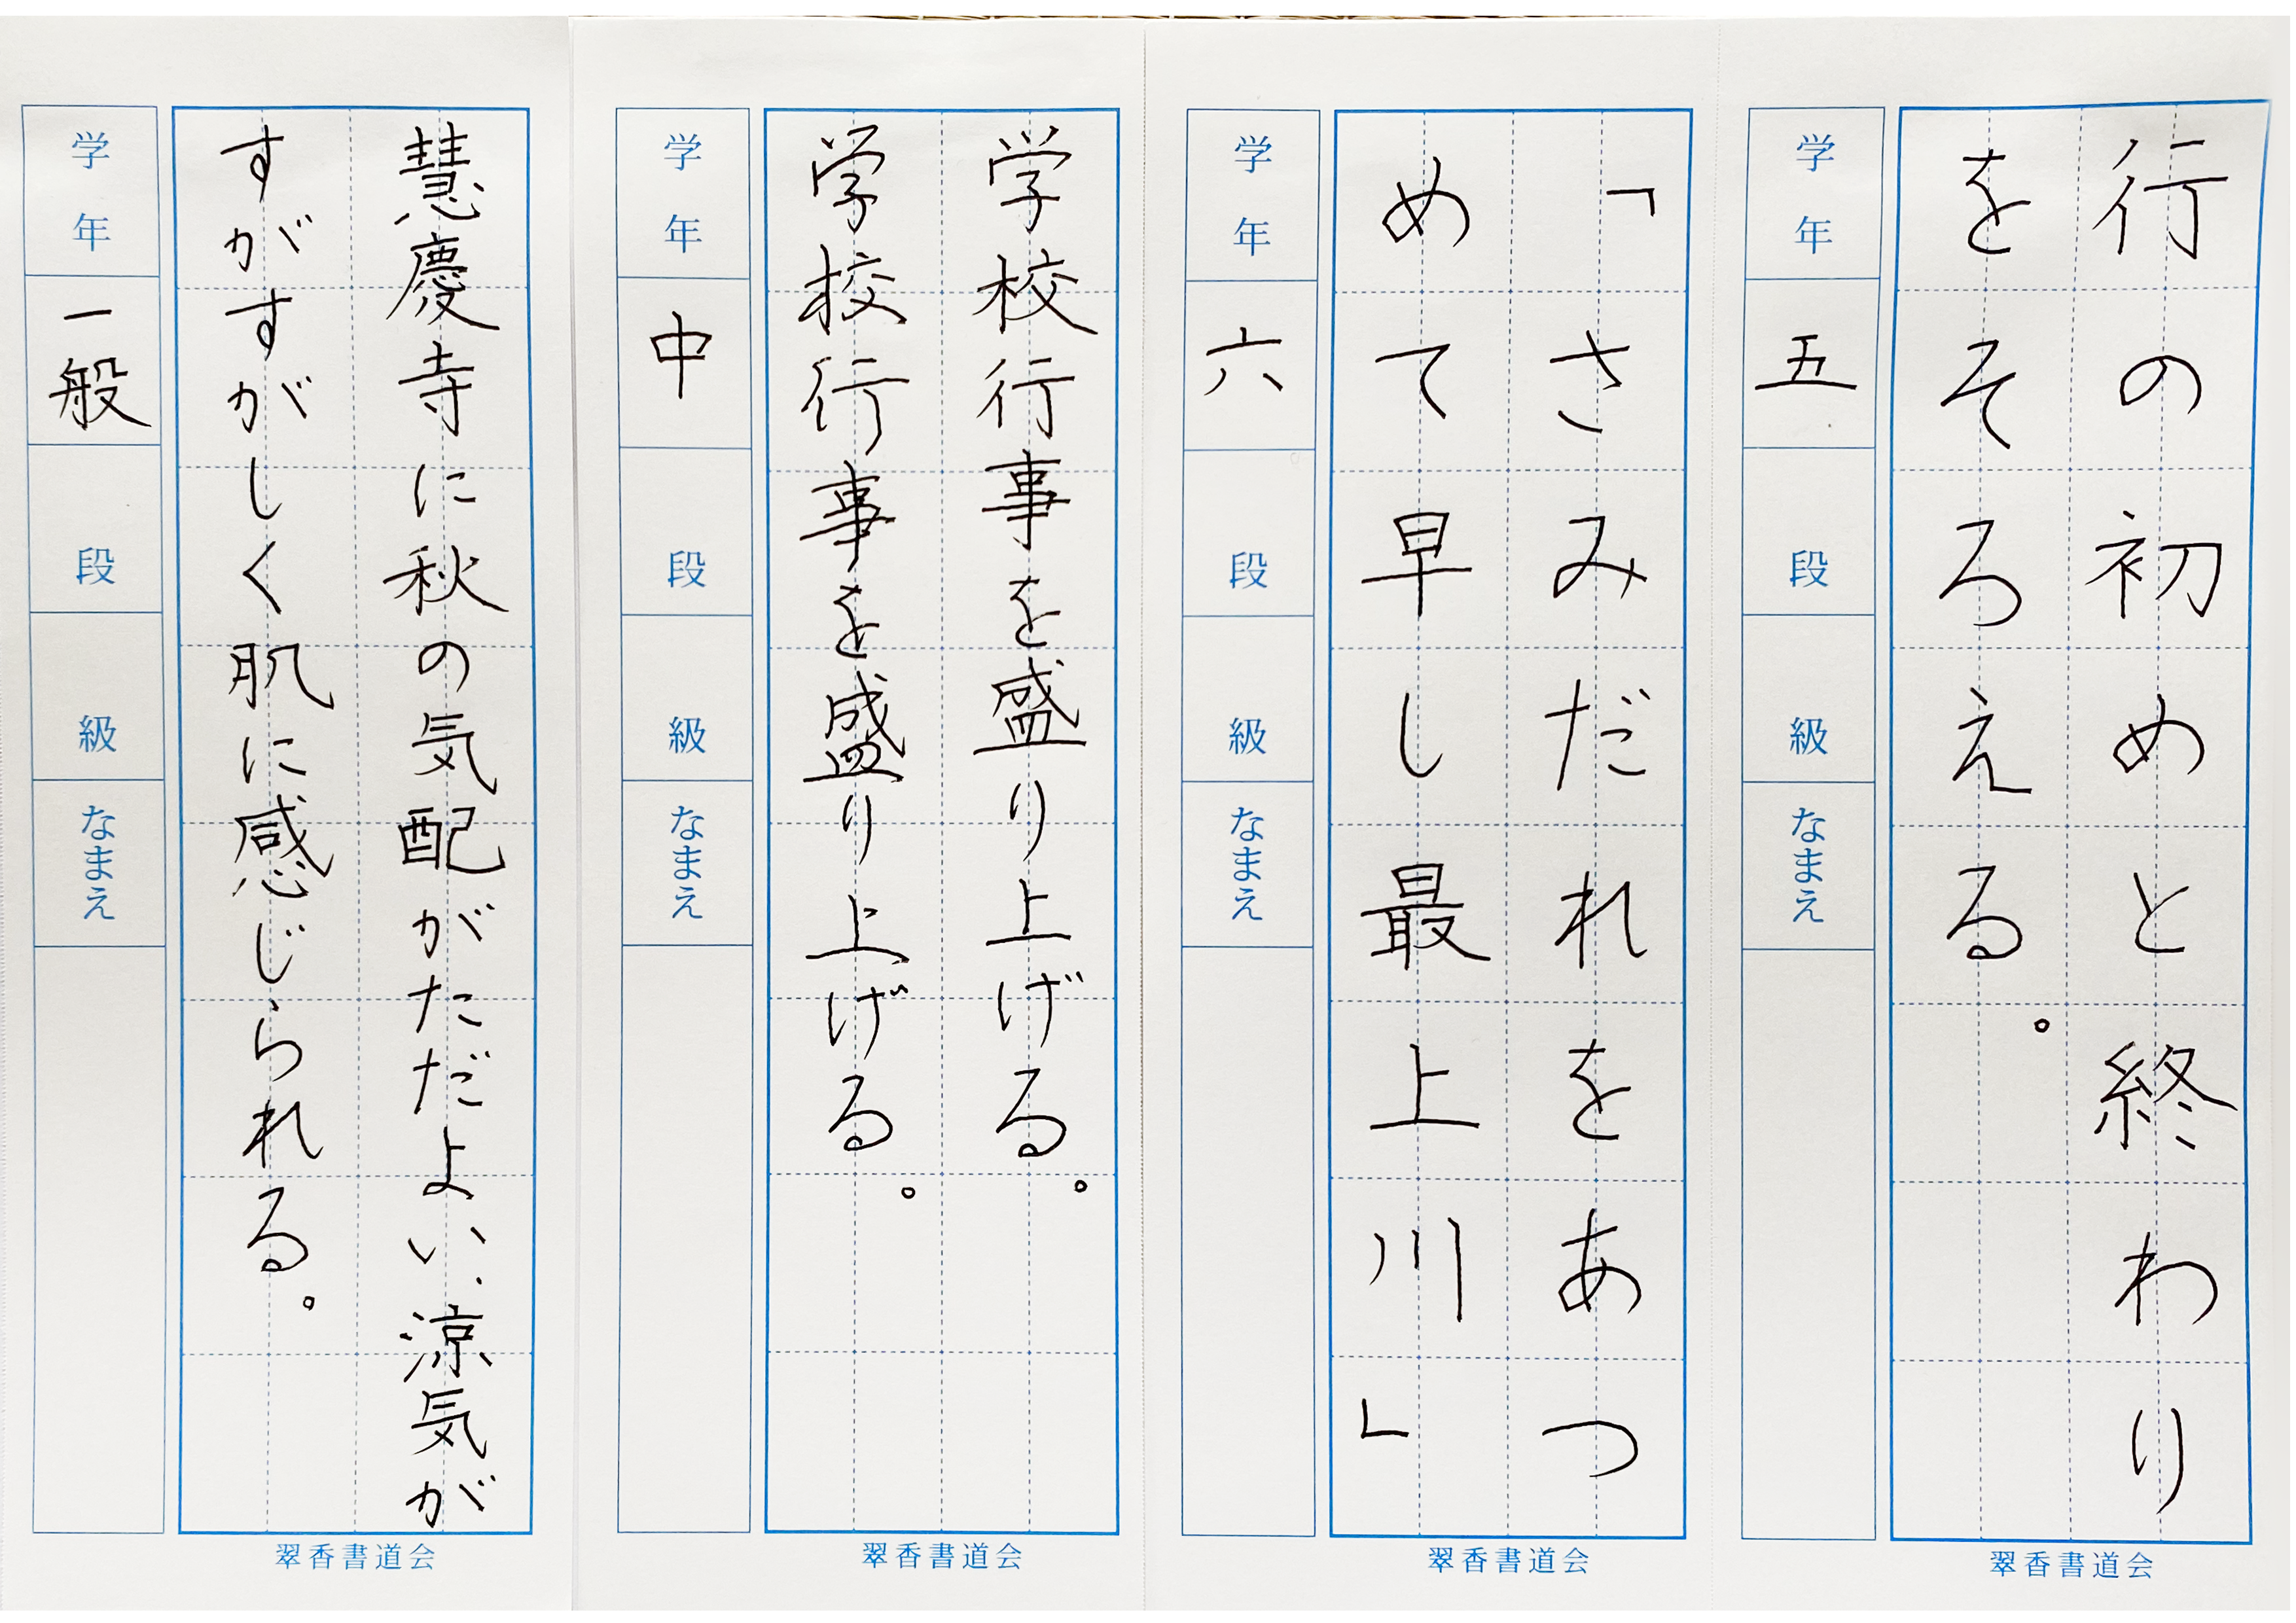 行の初めと終わり
をそろえる。
学年
五
段
級
なまえ
翠香書道会
「さみだれをあつ
めて早し最上川」
学年
六
段
級
なまえ
翠香書道会
学校行事を盛り上げる。
学校行事を盛り上げる。
学年
中
段
級
なまえ
翠香書道会
慧慶寺に秋の気配がただよい、涼気が
すがすがしく肌に感じられる。
学年
一般
段
級
なまえ
翠香書道会